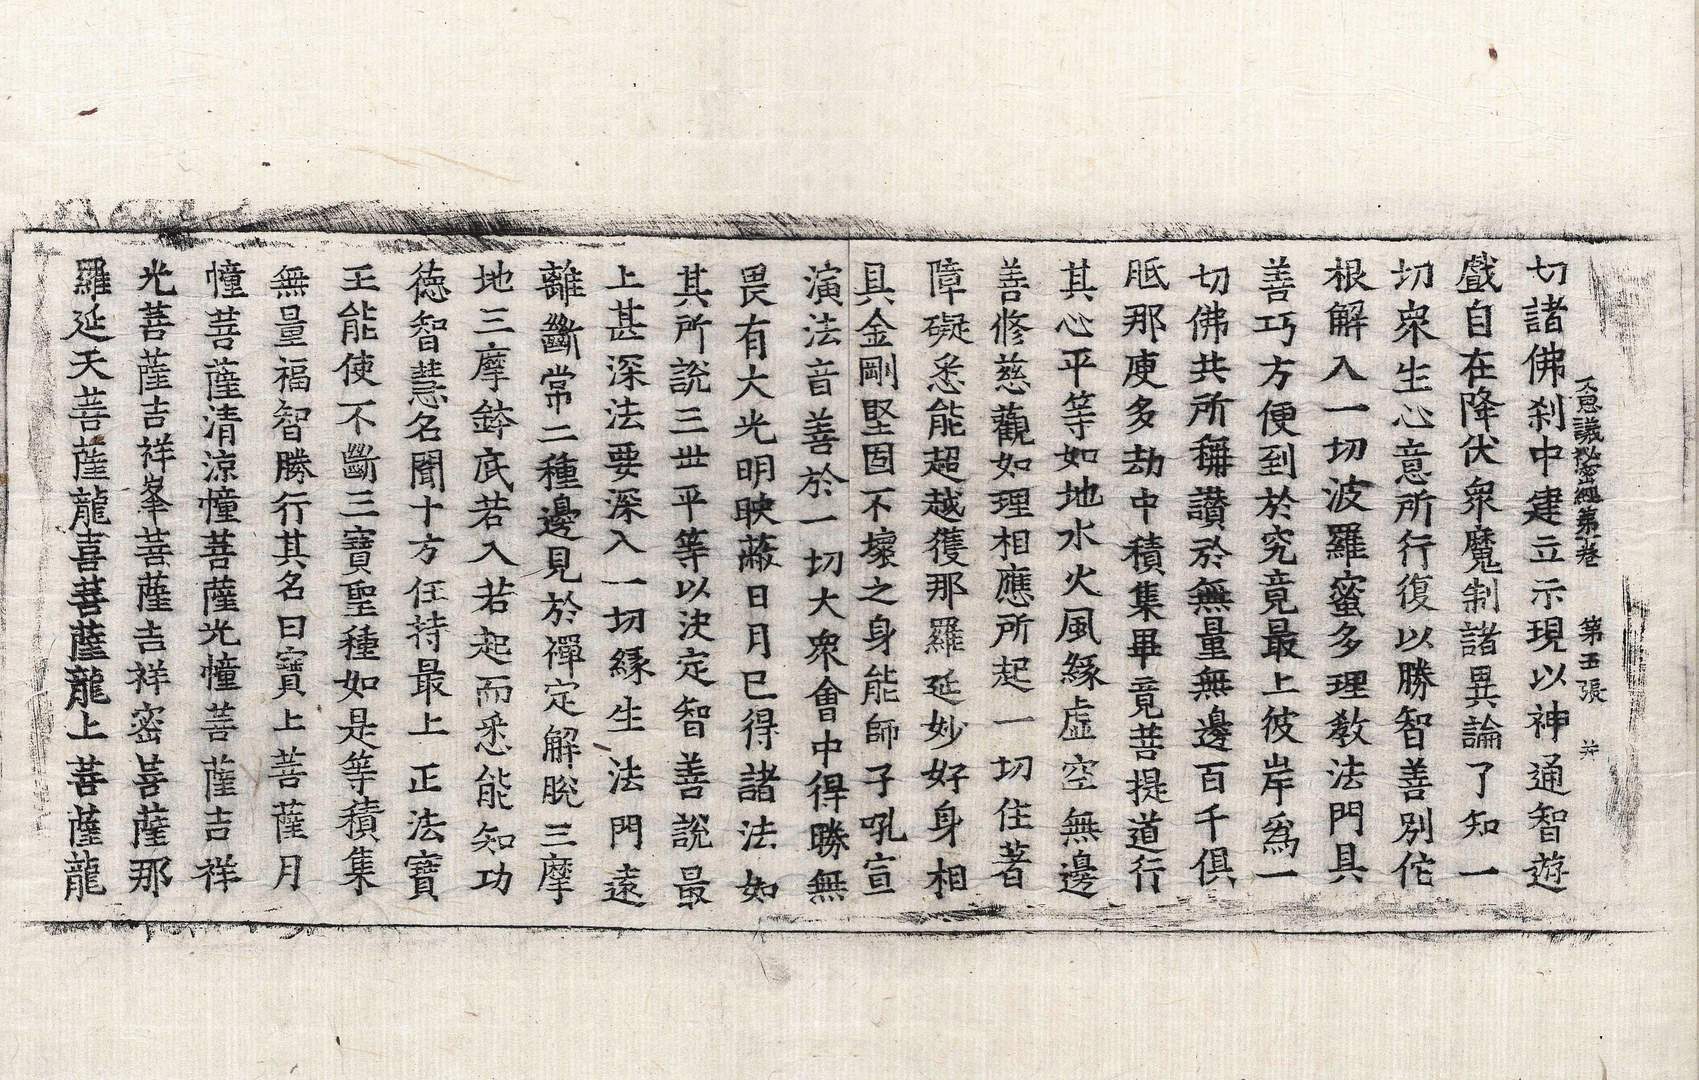 不思議秘密經第一卷　第五張　卅
切諸佛刹中建立示現以神通智遊
戲自在降伏衆魔制諸異論了知一
切衆生心意所行復以勝智善別佗
根解入一切波羅蜜多理教法門具
善巧方便到於究竟最上彼岸爲一
切佛共所稱讃於無量無邊百千俱
胝那庾多劫中積集畢竟菩提道行
其心平等如地水火風緣虛空無邊
善修慈觀如理相應所起一切住著
障礙悉能超越獲那羅延妙好身相
具金剛堅固不壞之身能師子吼宣
演法音善於一切大衆會中得勝無
畏有大光明映蔽日月已得諸法如
其所說三世平等以決定智善說最
上甚深法要深入一切緣生法門遠
離斷常二種邊見於禪定解脫三摩
地三摩鉢底若入若起而悉能知功
德智慧名聞十方任持最上正法寶
王能使不斷三寶聖種如是等積集
無量福智勝行其名曰寶上菩薩月
幢菩薩清涼幢菩薩光幢菩薩吉祥
光菩薩吉祥峯菩薩吉祥密菩薩那
羅延天菩薩龍喜菩薩龍上菩薩龍